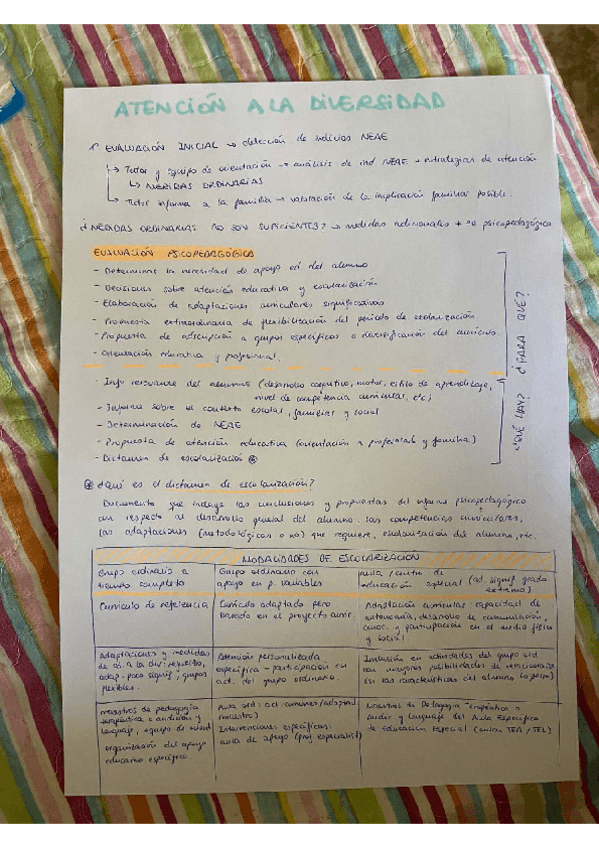 ATENCIÓN A LA DIVERSIDAD
1º EVALUACIÓN INICIAL → detección de indicios NEAE
→ Tutor y equipo de orientación → análisis de ind. NEAE + estrategias de atención
↳ MEDIDAS ORDINARIAS
→ Tutor informa a la familia → valoración de la implicación familiar posible.
¿MEDIDAS ORDINARIAS NO SON SUFICIENTES? → medidas adicionales + psicopedagógica
EVALUACIÓN PSICOPEDAGÓGICA
- Determinar la necesidad de apoyo ed. del alumno
- Decisiones sobre atención educativa y escolarización
- Elaboración de adaptaciones curriculares significativas
- Propuesta extraordinaria de flexibilización del periodo de escolarización.
- Propuesta de adscripción a grupos específicos o diversificación del currículo.
- Orientación educativa y profesional.
¿PARA QUÉ?
- Info relevante del alumno (desarrollo cognitivo, motor, estilo de aprendizaje,
nivel de competencia curricular, etc)
- Informe sobre el contexto escolar, familiar y social
- Determinación de NEAE
- Propuesta de atención educativa (orientación a profesorado y familia)
- Dictamen de escolarización
¿QUÉ HAY?
¿Qué es el dictamen de escolarización?
Documento que incluye las conclusiones y propuestas del informe psicopedagógico
con respecto al desarrollo general del alumno, las competencias curriculares,
las adaptaciones (metodológicas o no) que requiere, escolarización del alumno, etc.
MODALIDADES DE ESCOLARIZACIÓN
Grupo ordinario a
tiempo completo
Grupo ordinario con
apoyo en p. variables
Aula / centro de
educación especial (ad. signif. grado
extremo)
Currículo de referencia
Currículo adaptado pero
basado en el proyecto curric.
Adaptación curricular: capacidad de
autonomía, desarrollo de comunicación,
conoc. y participación en el medio físico
y social
Adaptaciones y medidas
de at. a la div: refuerzo,
adap. poco signif, grupos
flexibles.
Atención personalizada
específica - participación en
act. del grupo ordinario.
Inclusión en actividades del grupo ord
con mayores posibilidades de
(si las características del alumno lo permiten)
Maestros de pedagogía
terapéutica o audición y
lenguaje, equipo de
organización del apoyo
educativo específico
Aula ord: act. comunes/adaptadas
(maestro)
Intervenciones específicas:
aula de apoyo (prof. especialista)
Maestros de Pedagogía Terapéutica o
Audic. y Lenguaje del Aula Específica
de Educación Especial (aulas TEA / TEL)